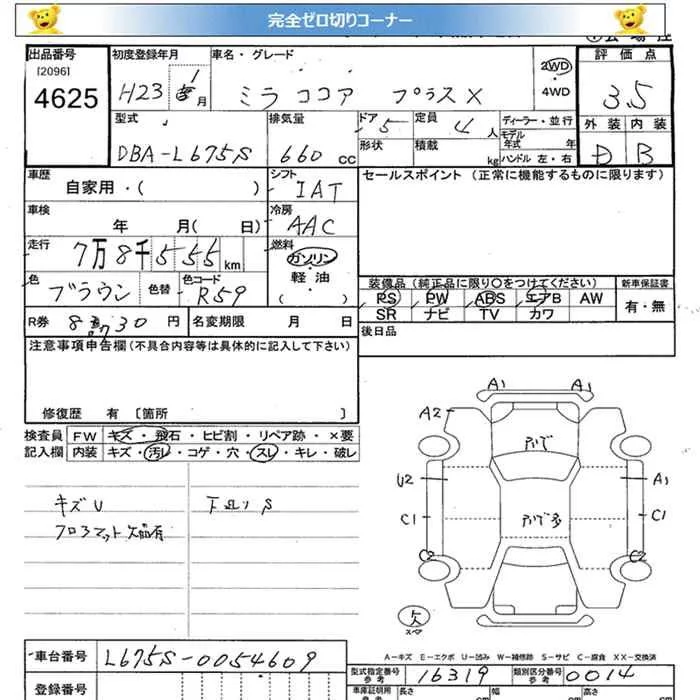 完全ゼロ切りコーナー
出品番号
[2096]
4625
初度登録年月
H23 1月
車名・グレード
ミラ ココア プラスX
2WD
4WD
評価点
3.5
外装 内装
D B
型式
DBA-L675S
排気量
660 cc
ドア 5
定員 4人
形状
積載 kg
ディーラー・並行
モデル年式 年式
ハンドル 左・右
車歴
自家用・( )
シフト
IAT
セールスポイント (正常に機能するものに限ります)
車検
年 月( 日)
冷房
AAC
走行
7万8千555km
燃料
ガソリン
軽油
( )
色
ブラウン
色替
色コード
R59
装備品(純正品に限り○をつけてください)
PS PW ABS エアB AW
SR ナビ TV カワ
新車保証書
有・無
R券 8,730円
名変期限 月 日
後日品
注意事項申告欄(不具合内容等は具体的に記入して下さい)
修復歴 有 [箇所 ]
検査員記入欄
FW キズ・飛石・ヒビ割・リペア跡・×要
内装 キズ・汚レ・コゲ・穴・スレ・キレ・破レ
キズU
下廻りS
フロアマット欠品有
A1 A1
A2
U2 A1
C1 C1
C2 C2
欠
スペア
A-キズ E-エクボ U-凹み W-補修跡 S-サビ C-腐食 XX-交換済
車台番号
L675S-0054609
登録番号
型式指定番号 参考
16319
類別区分番号 参考
0014
車庫証明用 参考
長さ cm
幅 cm
高さ cm